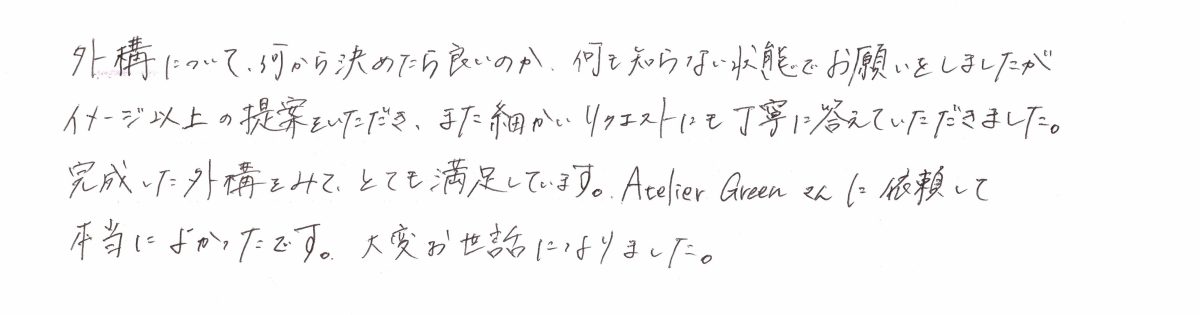 外構について、何から決めたら良いのか、何も知らない状態でお願いをしましたが
イメージ以上の提案をいただき、また細かいリクエストにも丁寧に答えていただきました。
完成した外構をみて、とても満足しています。Atelier Green さんに依頼して
本当によかったです。大変お世話になりました。